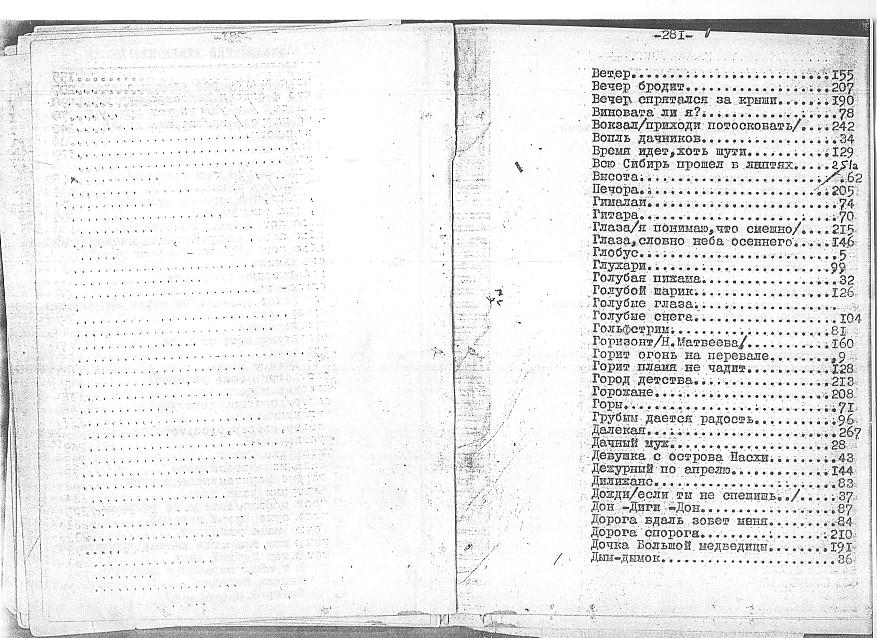 -281-
Ветер........................155
Вечер бродит.................207
Вечер спрятался за крыши.....190
Виновата ли я?...............78
Вокзал/приходи потосковать/..242
Вопль дачников...............34
Время идет,хоть шути.........129
Всю Сибирь прошел в лаптях...251а
Высота.......................62
Печора.......................205
Гималаи......................74
Гитара.......................70
Глаза/я понимаю,что смешно/..215
Глаза,словно неба осеннего...146
Глобус.......................5
Глухари......................99
Голубая пижама...............32
Голубой шарик................126
Голубые глаза................
Голубые снега................104
Гольфстрим...................81
Горизонт/Н.Матвеева/.........160
Горит огонь на перевале......9
Горит пламя не чадит.........128
Город детства................213
Горожане.....................208
Горы.........................71
Грубым дается радость........96
Далекая......................267
Дачный муж...................28
Девушка с острова Насхи......43
Дежурный по апрелю...........144
Дилижанс.....................83
Дожди/если ты не спешишь../..37
Дон -Диги -Дон...............87
Дорога вдаль зовет меня......84
Дорога спорога...............210
Дочка Большой медведицы......191
Дым-дымок....................36